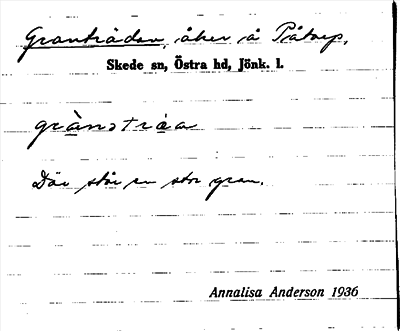 Granträdan, åker å Påtorp,
Skede sn, Östra hd, Jönk. l.
Där står en stor gran.
Annalisa Anderson 1936